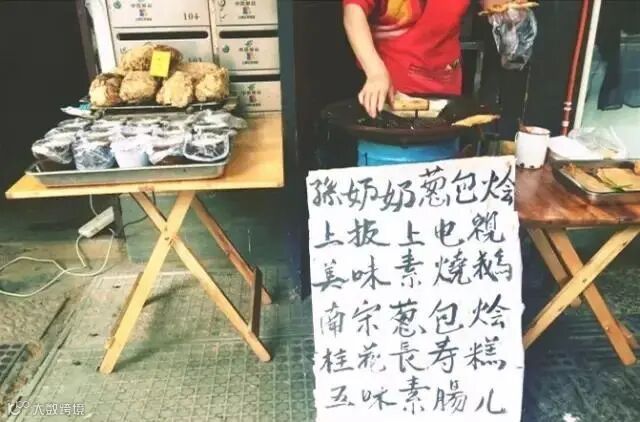 104
孫奶奶葱包烩
上报上电視
美味素燒鹅
南宋葱包烩
桂花長寿糕
五味素腸儿
大数跨境